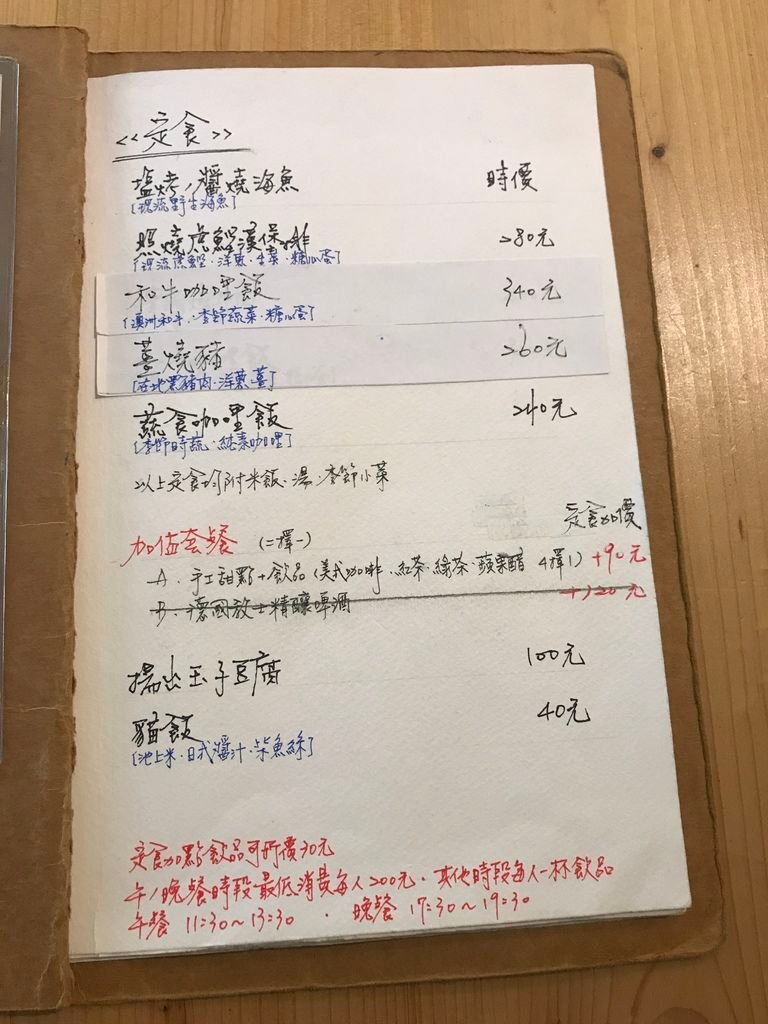 <<定食>>
塩烤/醬燒海魚 時價
[現流野生海魚]
照燒虎鰹漢堡排 280元
[現流虎鰹·洋蔥·生菜·糖心蛋]
和牛咖哩飯 340元
[澳洲和牛·季節蔬菜·糖心蛋]
薑燒豬 260元
[在地黑豬肉·洋蔥·薑]
蔬食咖哩飯 240元
[季節時蔬·純素咖哩]
以上定食均附米飯·湯·季節小菜
定食加價
加值套餐 (二擇一)
A. 手工甜點+飲品(美式咖啡·紅茶·綠茶·蘋果醋 4擇1) +90元
B. 德國放士精釀啤酒 +120元
揚出玉子豆腐 100元
貓飯 40元
[池上米·日式醬汁·柴魚絲]
定食加點飲品可折價30元
午/晚餐時段最低消費每人200元·其他時段每人一杯飲品
午餐 11:30~13:30 · 晚餐 17:30~19:30